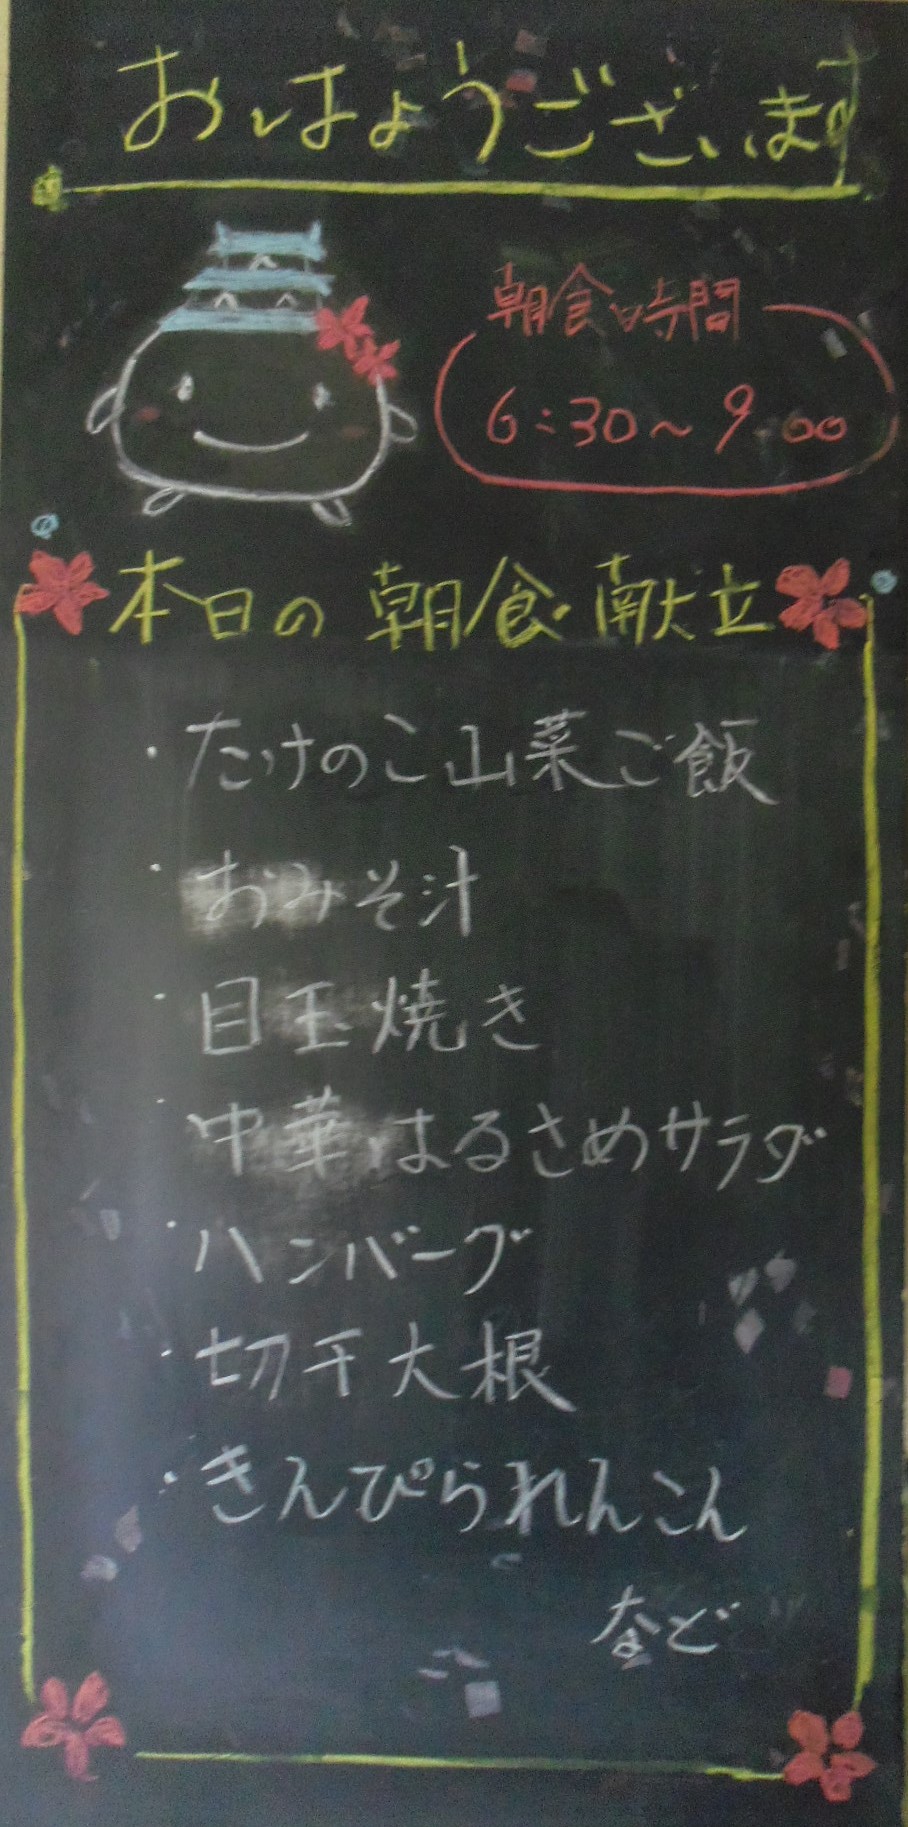 おはようございます
朝食時間
6:30～9:00
本日の朝食献立
・たけのこ山菜ご飯
・おみそ汁
・目玉焼き
・中華はるさめサラダ
・ハンバーグ
・切干大根
・きんぴられんこん
など